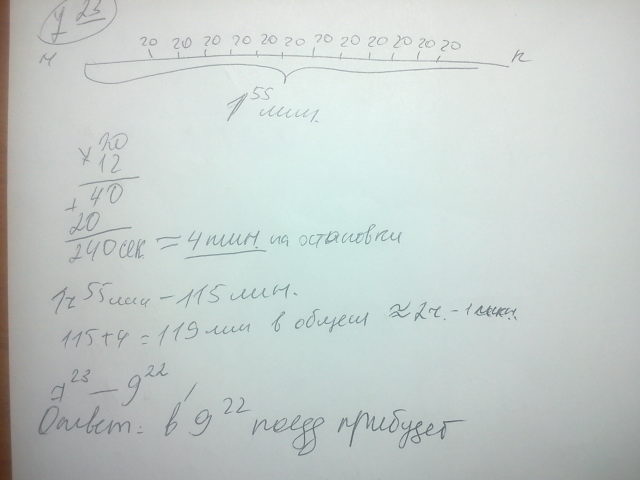 7 23
20 20 20 20 20 20 20 20 20 20 20 20
м п
1 55 мин.
20
× 12
+ 40
20
240 сек = 4 мин. на остановки
1ч 55 мин – 115 мин.
115+4 = 119 мин в общем ≈ 2ч. - 1 мин.
7 23 — 9 22
Ответ: в 9 22 поезд прибудет